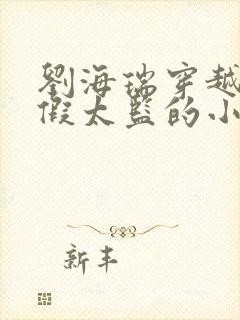 劉海瑞穿越
假太監的小
新丰